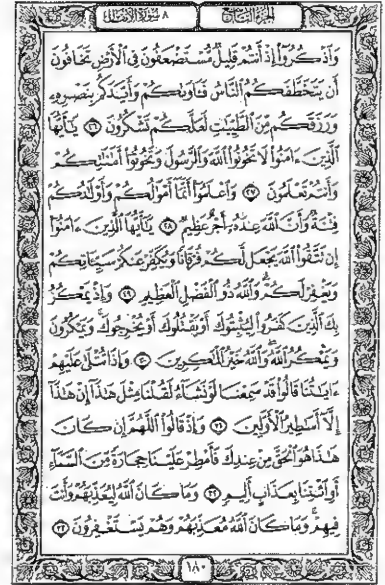 الجزء التاسع ٨ سورة الأنفال
وَٱذْكُرُوٓاْ إِذْ أَنتُمْ قَلِيلٌ مُّسْتَضْعَفُونَ فِى ٱلْأَرْضِ تَخَافُونَ
أَن يَتَخَطَّفَكُمُ ٱلنَّاسُ فَـَٔاوَىٰكُمْ وَأَيَّدَكُم بِنَصْرِهِۦ
وَرَزَقَكُم مِّنَ ٱلطَّيِّبَٰتِ لَعَلَّكُمْ تَشْكُرُونَ ٢٦ يَٰٓأَيُّهَا
ٱلَّذِينَ ءَامَنُواْ لَا تَخُونُواْ ٱللَّهَ وَٱلرَّسُولَ وَتَخُونُوٓاْ أَمَٰنَٰتِكُمْ
وَأَنتُمْ تَعْلَمُونَ ٢٧ وَٱعْلَمُوٓاْ أَنَّمَآ أَمْوَٰلُكُمْ وَأَوْلَٰدُكُمْ
فِتْنَةٌ وَأَنَّ ٱللَّهَ عِندَهُۥٓ أَجْرٌ عَظِيمٌ ٢٨ يَٰٓأَيُّهَا ٱلَّذِينَ ءَامَنُوٓاْ
إِن تَتَّقُواْ ٱللَّهَ يَجْعَل لَّكُمْ فُرْقَانًا وَيُكَفِّرْ عَنكُمْ سَيِّـَٔاتِكُمْ
وَيَغْفِرْ لَكُمْ وَٱللَّهُ ذُو ٱلْفَضْلِ ٱلْعَظِيمِ ٢٩ وَإِذْ يَمْكُرُ
بِكَ ٱلَّذِينَ كَفَرُواْ لِيُثْبِتُوكَ أَوْ يَقْتُلُوكَ أَوْ يُخْرِجُوكَ وَيَمْكُرُونَ
وَيَمْكُرُ ٱللَّهُ وَٱللَّهُ خَيْرُ ٱلْمَٰكِرِينَ ٣٠ وَإِذَا تُتْلَىٰ عَلَيْهِمْ
ءَايَٰتُنَا قَالُواْ قَدْ سَمِعْنَا لَوْ نَشَآءُ لَقُلْنَا مِثْلَ هَٰذَآ إِنْ هَٰذَآ
إِلَّآ أَسَٰطِيرُ ٱلْأَوَّلِينَ ٣١ وَإِذْ قَالُواْ ٱللَّهُمَّ إِن كَانَ
هَٰذَا هُوَ ٱلْحَقَّ مِنْ عِندِكَ فَأَمْطِرْ عَلَيْنَا حِجَارَةً مِّنَ ٱلسَّمَآءِ
أَوِ ٱئْتِنَا بِعَذَابٍ أَلِيمٍ ٣٢ وَمَا كَانَ ٱللَّهُ لِيُعَذِّبَهُمْ وَأَنتَ
فِيهِمْ وَمَا كَانَ ٱللَّهُ مُعَذِّبَهُمْ وَهُمْ يَسْتَغْفِرُونَ ٣٣
١٨٠